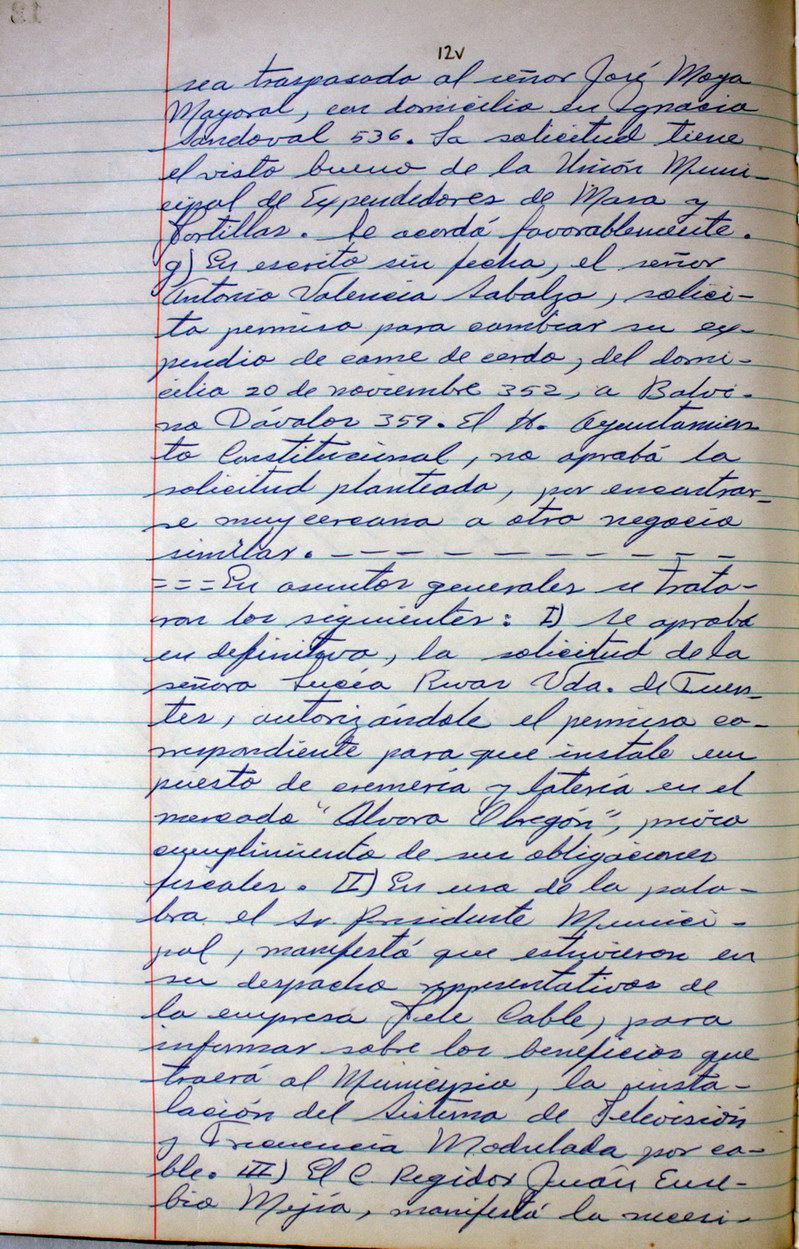 12v
sea traspasado al señor José Moya
Mayoral, con domicilio en Ignacio
Sandoval 536. La solicitud tiene
el visto bueno de la Unión Muni-
cipal de Expendedores de Masa y
Tortillas. Se acordó favorablemente.
g) En escrito sin fecha, el señor
Antonio Valencia Sabalza, solici-
ta permiso para cambiar su ex-
pendio de carne de cerdo, del domi-
cilio 20 de noviembre 352, a Balvi-
no Dávalos 359. El H. Ayuntamien
to Constitucional, no aprobó la
solicitud planteada, por encontrar-
se muy cercana a otro negocio
similar. — — — — — — — — — — —
===En asuntos generales se trata-
ron los siguientes: I) Se aprobó
en definitiva, la solicitud de la
señora Lucía Rivas Vda. de Fuen-
tes, autorizándole el permiso co-
rrespondiente para que instale un
puesto de cremería y latería en el
mercado "Alvaro Obregón", previo
cumplimiento de sus obligaciones
fiscales. II) En uso de la pala-
bra el Sr. Presidente Munici-
pal, manifestó que estuvieron en
su despacho representativos de
la empresa Tele Cable, para
informar sobre los beneficios que
traerá al Municipio, la insta-
lación del Sistema de Televisión
y Frecuencia Modulada por ca-
ble. III) El C. Regidor Juán Euse-
bio Mejía, manifestó la necesi-